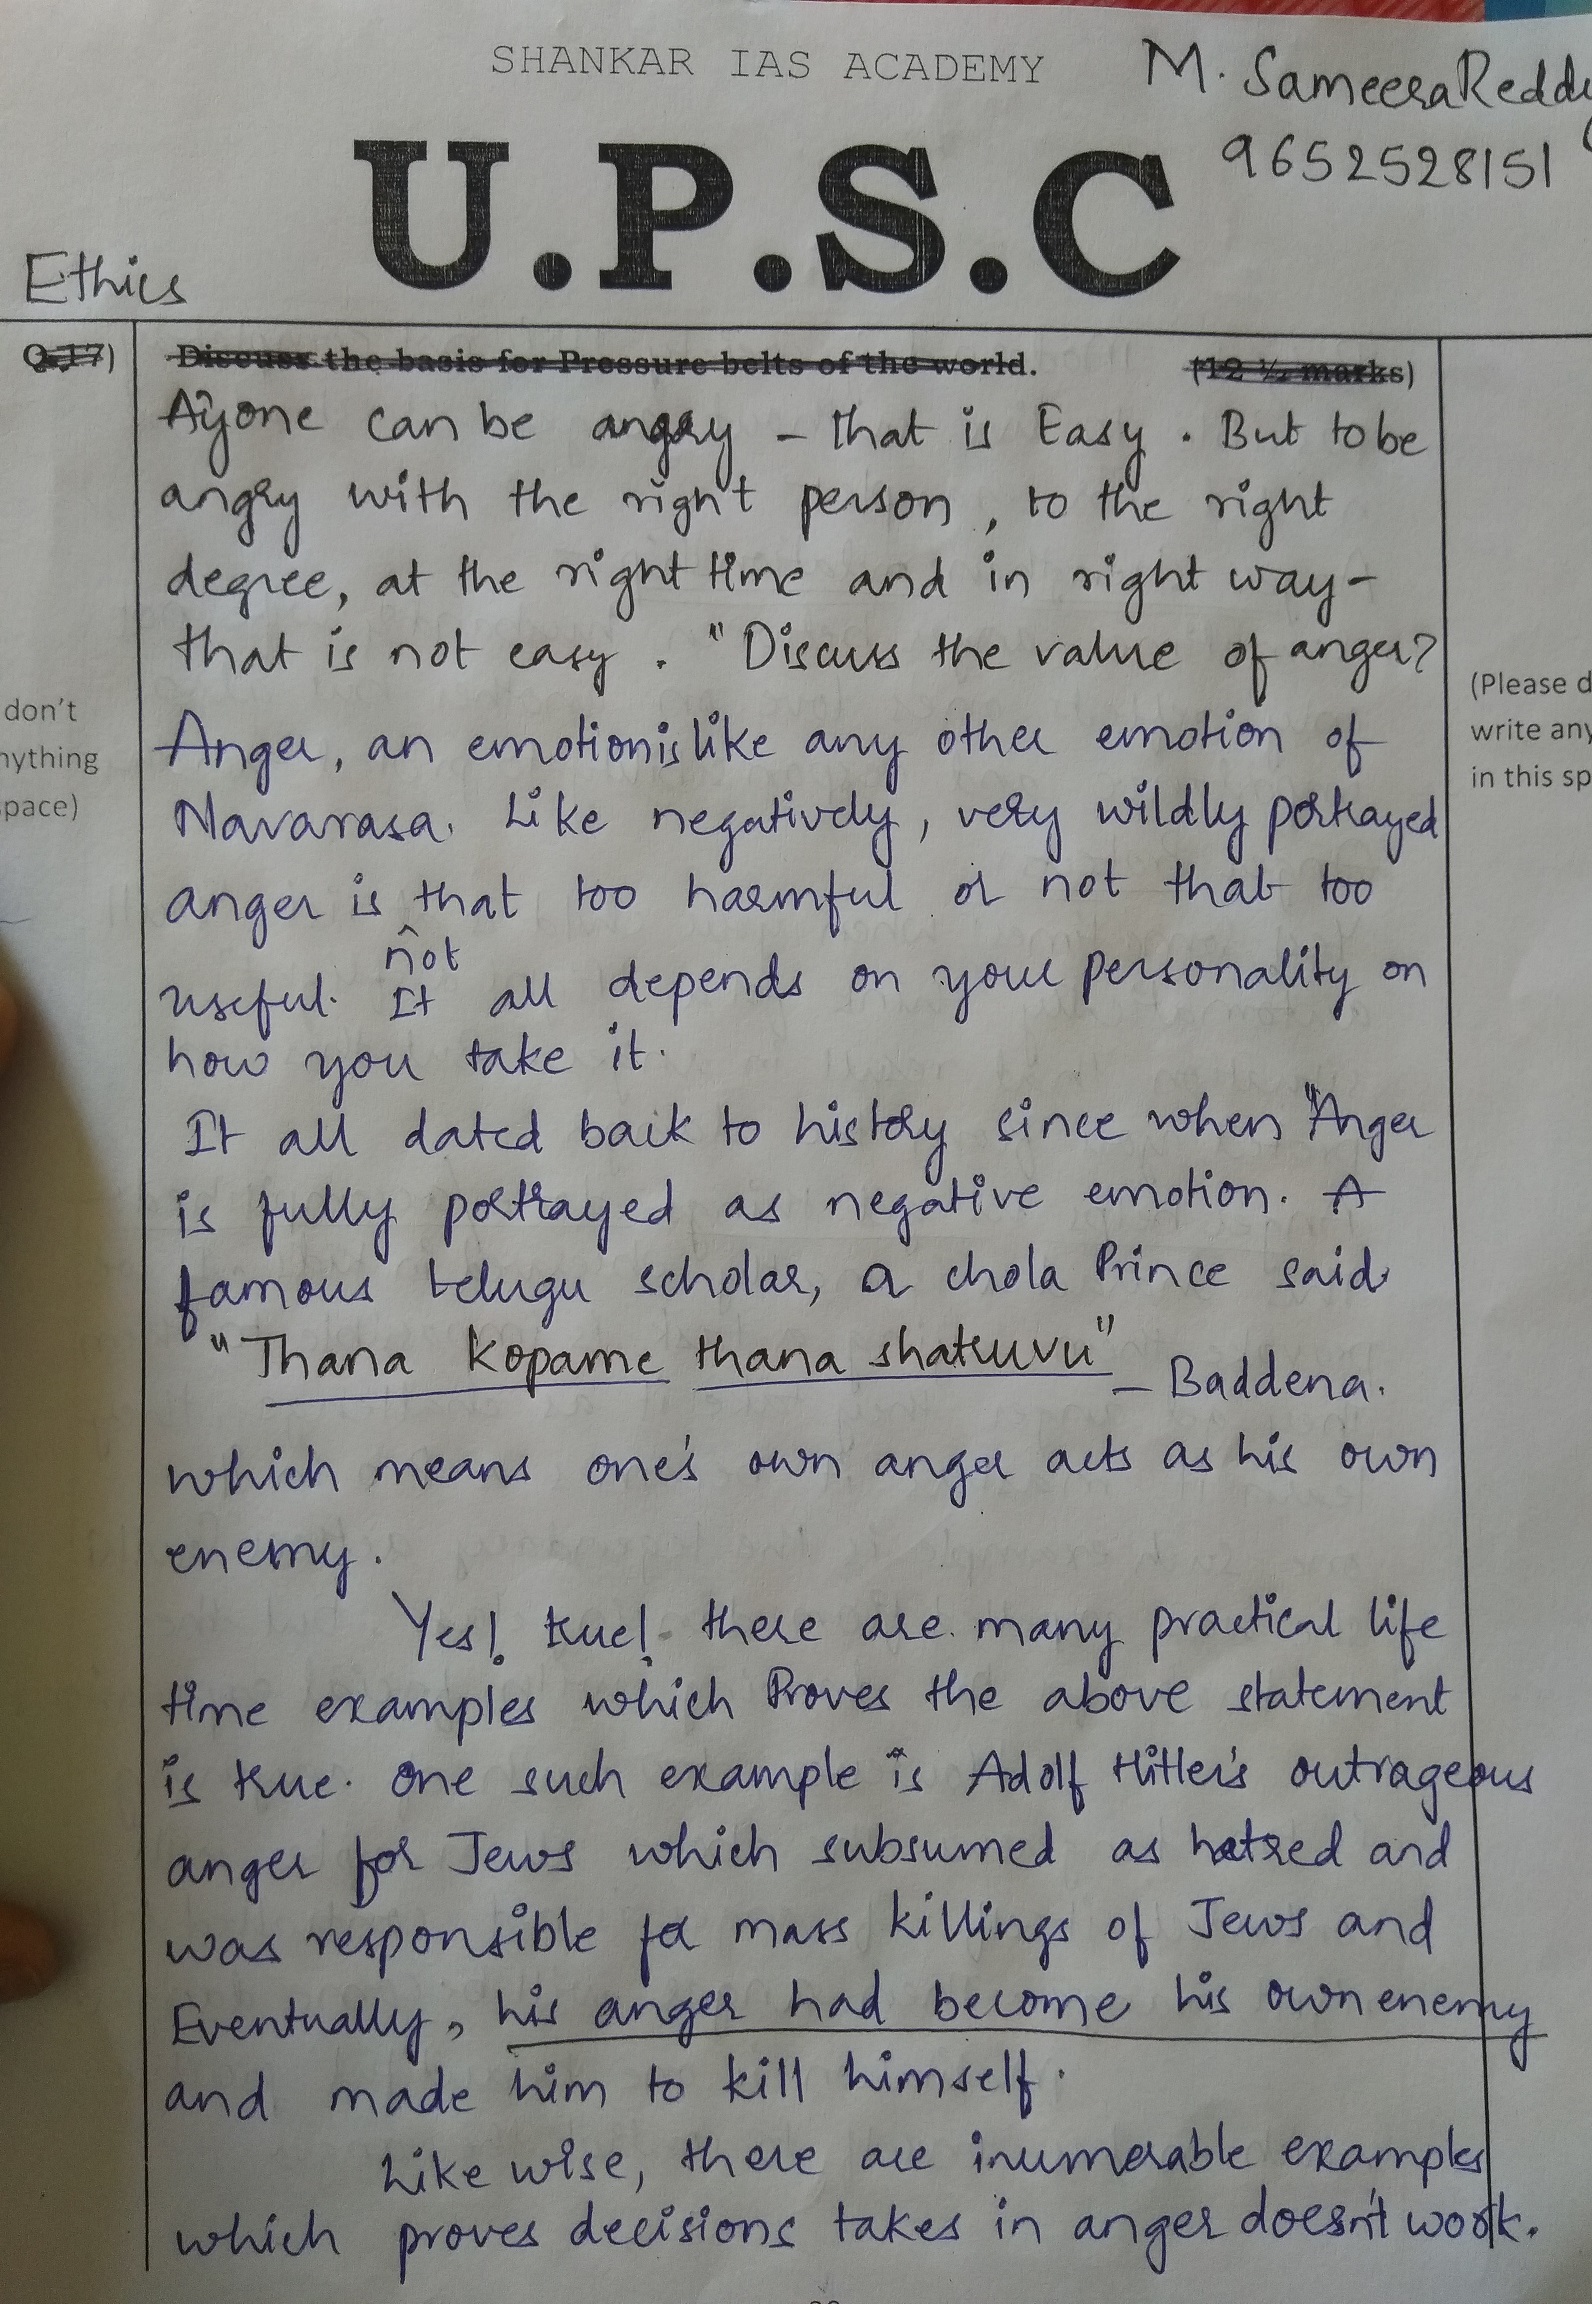 SHANKAR IAS ACADEMY
M. SameeraReddy
9652528151
U.P.S.C
Ethics
Q.17) Discuss the basis for Pressure belts of the world. (12 ½ marks)
Ayone can be angry - that is Easy. But to be
angry with the right person, to the right
degree, at the right time and in right way-
that is not easy. "Discuss the value of anger?
don't
nything
space)
(Please d
write any
in this sp
Anger, an emotion is like any other emotion of
Navarasa. Like negatively, very wildly portrayed
anger is that too harmful or not that too
not
useful. It all depends on your personality on
how you take it.
It all dated back to history since when "Anger
is fully portrayed as negative emotion. A
famous telugu scholar, a chola Prince said
"Thana kopame thana shatruvu"
- Baddena.
which means one's own anger acts as his own
enemy.
Yes! true! there are many practical life
time examples which Proves the above statement
is true. One such example is Adolf Hitler's outrageous
anger for Jews which subsumed as hatred and
was responsible for mass killings of Jews and
Eventually, his anger had become his own enemy
and made him to kill himself.
Like wise, there are inumerable examples
which proves decisions takes in anger doesn't work.